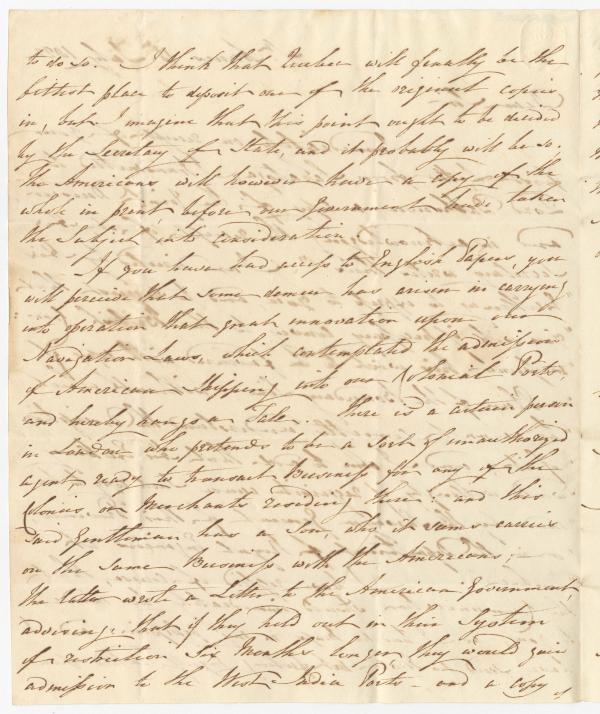 to do so. I think that Quebec will finally be the
fittest place to deposit one of the original copies
in, but I imagine that this point ought to be decided
by the Secretary of State, and it probably will be so.
The Americans, will however have a copy of the
whole in print, before our Government have taken
the Subject into consideration.
If you have had access to English Papers, you
will perceive that some demur has arisen in carrying
into operation that great innovation upon our
Navigation Laws, which contemplated the admission
of American Shipping into our Colonial Ports,
and hereby hangs a Tale. There is a certain person
in London who pretends to be a sort of unauthorized
agent ready to transact Business for any of the
Colonies, or Merchants residing there; and this
said Gentleman has a Son, who it seems carries
on the same Business with the Americans;
the latter wrote a Letter to the American Government,
advising, that if they held out in their System
of restriction Six Months longer they would gain
admission to the West India Ports - and a copy
of